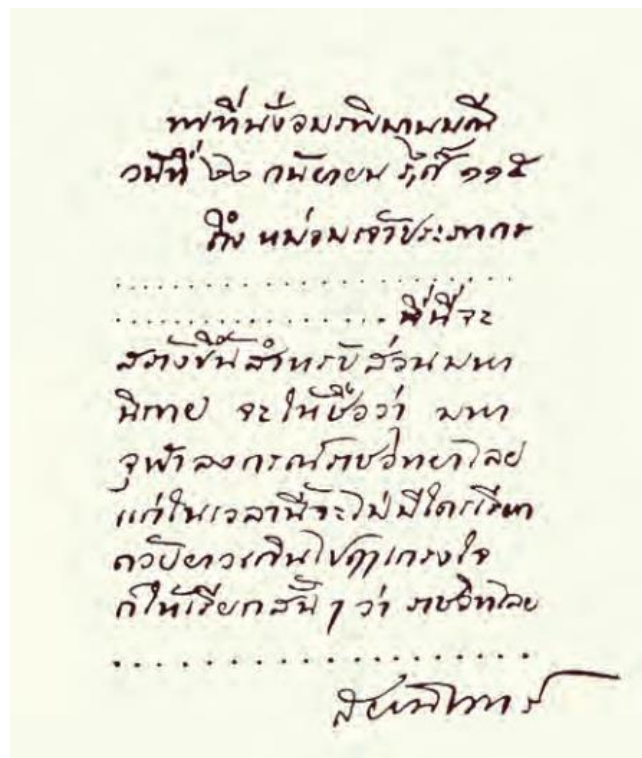 พระที่นั่งอมรพิมานมณี
วันที่ ๒๒ กันยายน ร,ศ ๑๑๕
ถึง หม่อมเจ้าประภากร
......................
................ ที่นี่จะ
สร้างขึ้นสำหรับส่วนมหา
นิกาย จะให้ชื่อว่า มหา
จุฬาลงกรณ์ราชวิทยาไลย
แก่ในเวลานี้จะไม่มีใครเรียก
ด้วยยาวเกินไปฤๅเกรงใจ
ก็ให้เรียกสั้น ๆ ว่า ราชวิทไลย
....................
สยามินทร์